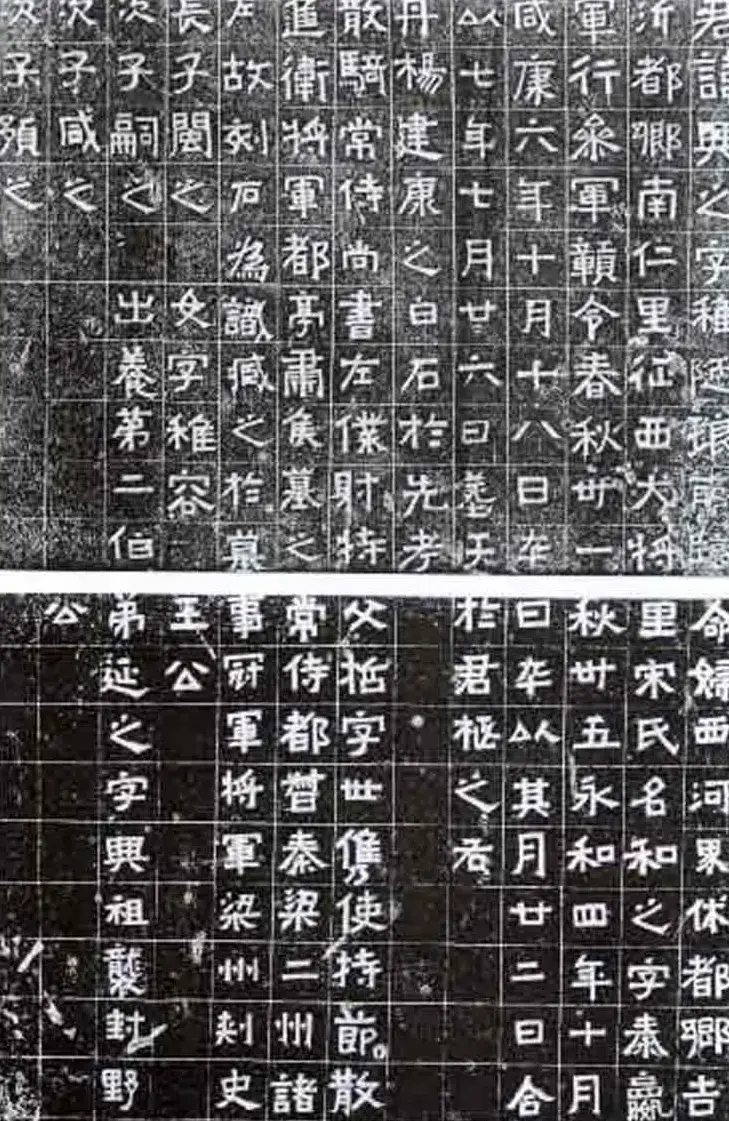 君諱興之字稚陋琅耶臨
沂都鄉南仁里征西大將
軍行參軍贛令春秋卅一
咸康六年十月十八日卒
以七年七月廿六日葬于
丹楊建康之白石於先考
散騎常侍尚書左僕射特
進衛將軍都亭肅侯墓之
左故刻石為識臧之於墓
長子閩之 女字稚容
次子嗣之 出養第二伯
次子咸之
次子預之
命婦西河界休都鄉吉
里宋氏名和之字秦嬴
秋卅五永和四年十月
日卒以其月廿二日合
於君柩之右
父悊字世儁使持節散
常侍都督秦梁二州諸
事冠軍將軍梁州刺史
王公
弟延之字興祖襲封野
公